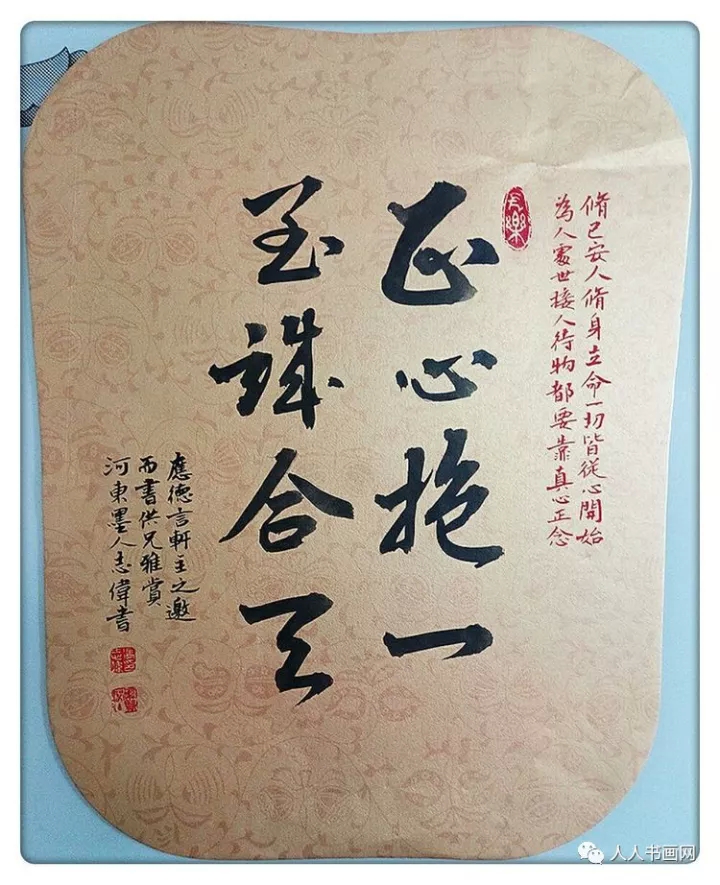 脩己安人脩身立命一切皆從心開始
為人處世接人待物都要靠真心正念
長樂
正心抱一
至誠合天
應德言軒主之邀
而書供兄雅賞
河東墨人志偉書
人人书画网